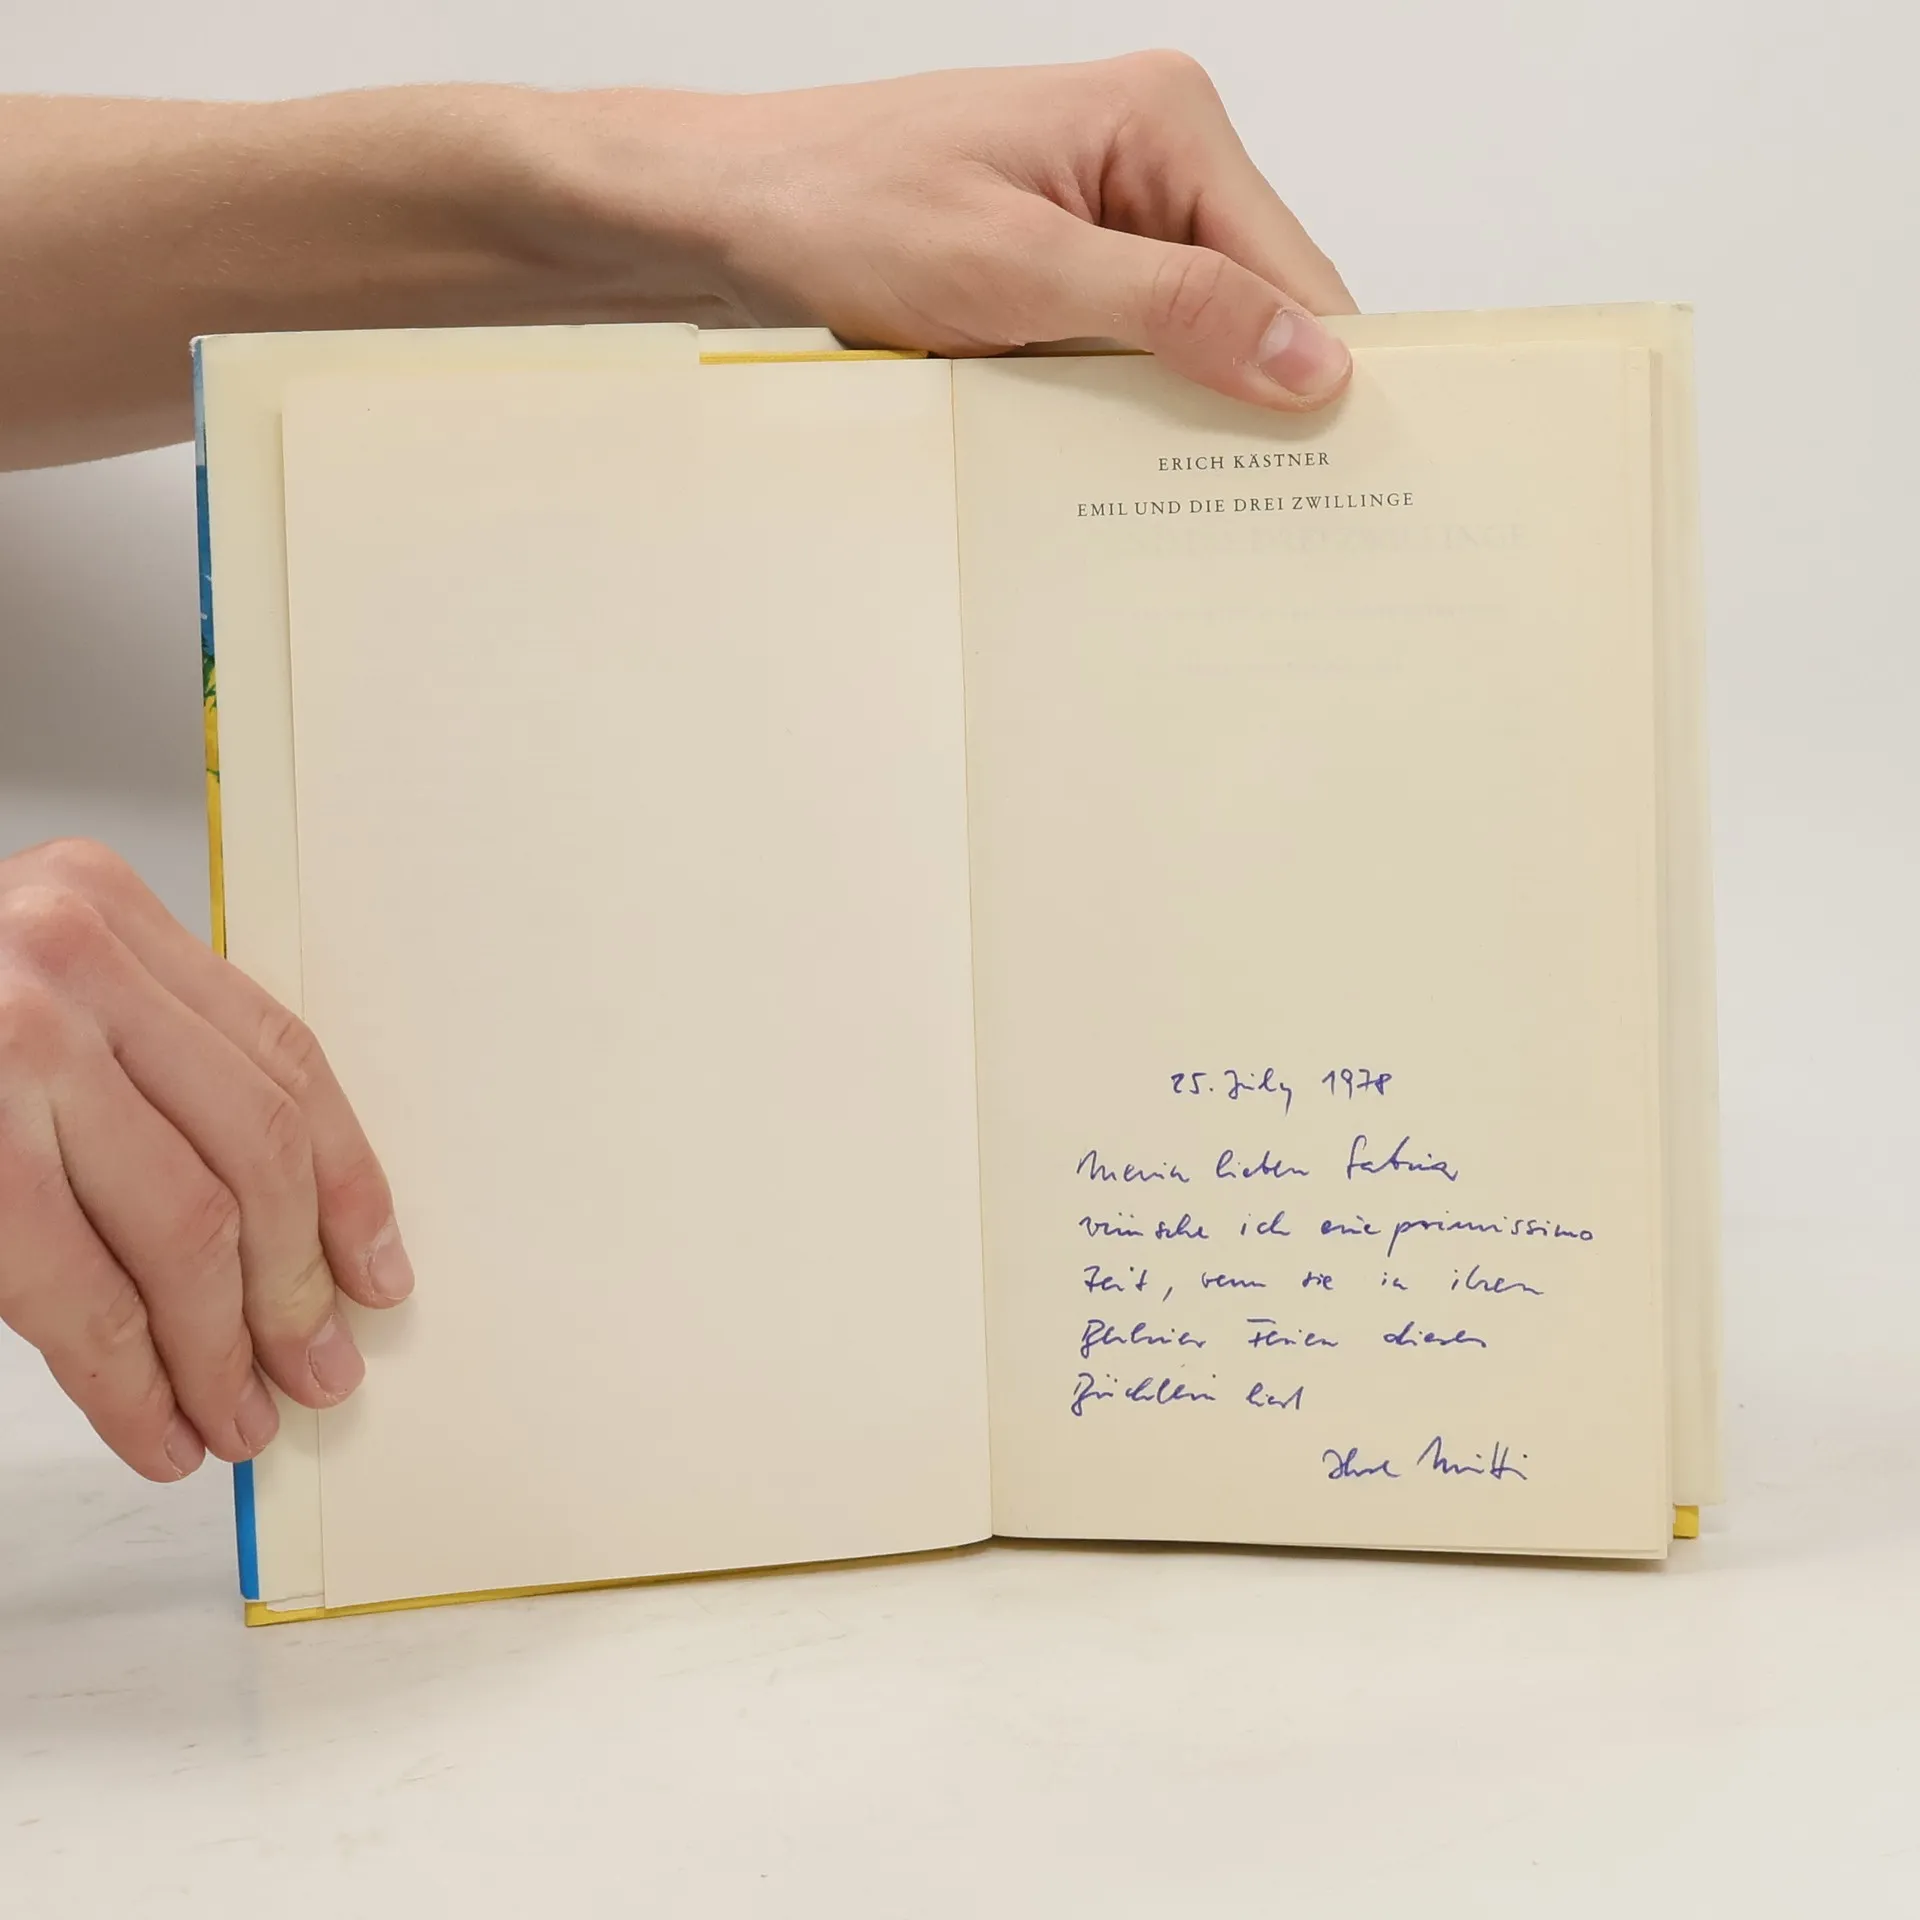 ERICH KÄSTNER
EMIL UND DIE DREI ZWILLINGE
25. July 1978
Meiner lieben Sabina
wünsche ich eine primissimo
Zeit, wenn sie in ihren
Berliner Ferien dieses
Büchlein liest
Ihre Mutti